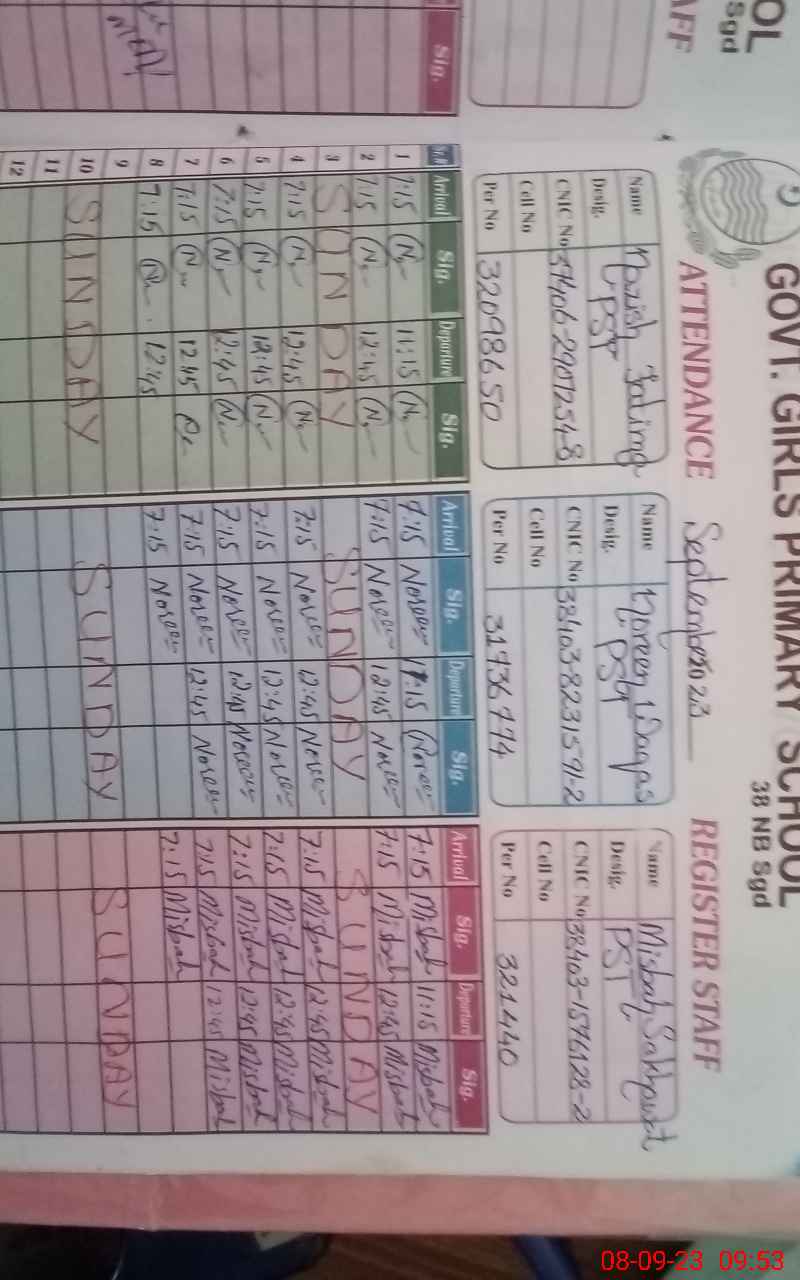 OL
Sgd
AFF
Sig.
GOVT. GIRLS PRIMARY SCHOOL
38 NB Sgd
ATTENDANCE September 2023 REGISTER STAFF
Name Nazish Fatima
Desig. PST
CNIC No 37406-2907254-8
Cell No
Per No 32098650
Name Noreen Waqas
Desig. PST
CNIC No 38403-8231591-2
Cell No
Per No 31736774
Name Misbah Sakhawat
Desig. PST
CNIC No 38403-1596128-2
Cell No
Per No 321440
Sr.# Arrival Sig. Departure Sig. Arrival Sig. Departure Sig. Arrival Sig. Departure Sig.
1 7:15 N 11:15 N 7:15 Noreen 11:15 Noreen 7:15 Misbah 11:15 Misbah
2 7:15 N 12:45 N 7:15 Noreen 12:45 Noreen 7:15 Misbah 12:45 Misbah
3 SUNDAY SUNDAY SUNDAY
4 7:15 N 12:45 N 7:15 Noreen 12:45 Noreen 7:15 Misbah 12:45 Misbah
5 7:15 N 12:45 N 7:15 Noreen 12:45 Noreen 7:15 Misbah 12:45 Misbah
6 7:15 N 12:45 N 7:15 Noreen 12:45 Noreen 7:15 Misbah 12:45 Misbah
7 7:15 N 12:45 7:15 Noreen 12:45 Noreen 7:15 Misbah 12:45 Misbah
8 7:15 12:45 7:15 Noreen 7:15 Misbah
9
10 SUNDAY SUNDAY SUNDAY
11
12
08-09-23 09:53